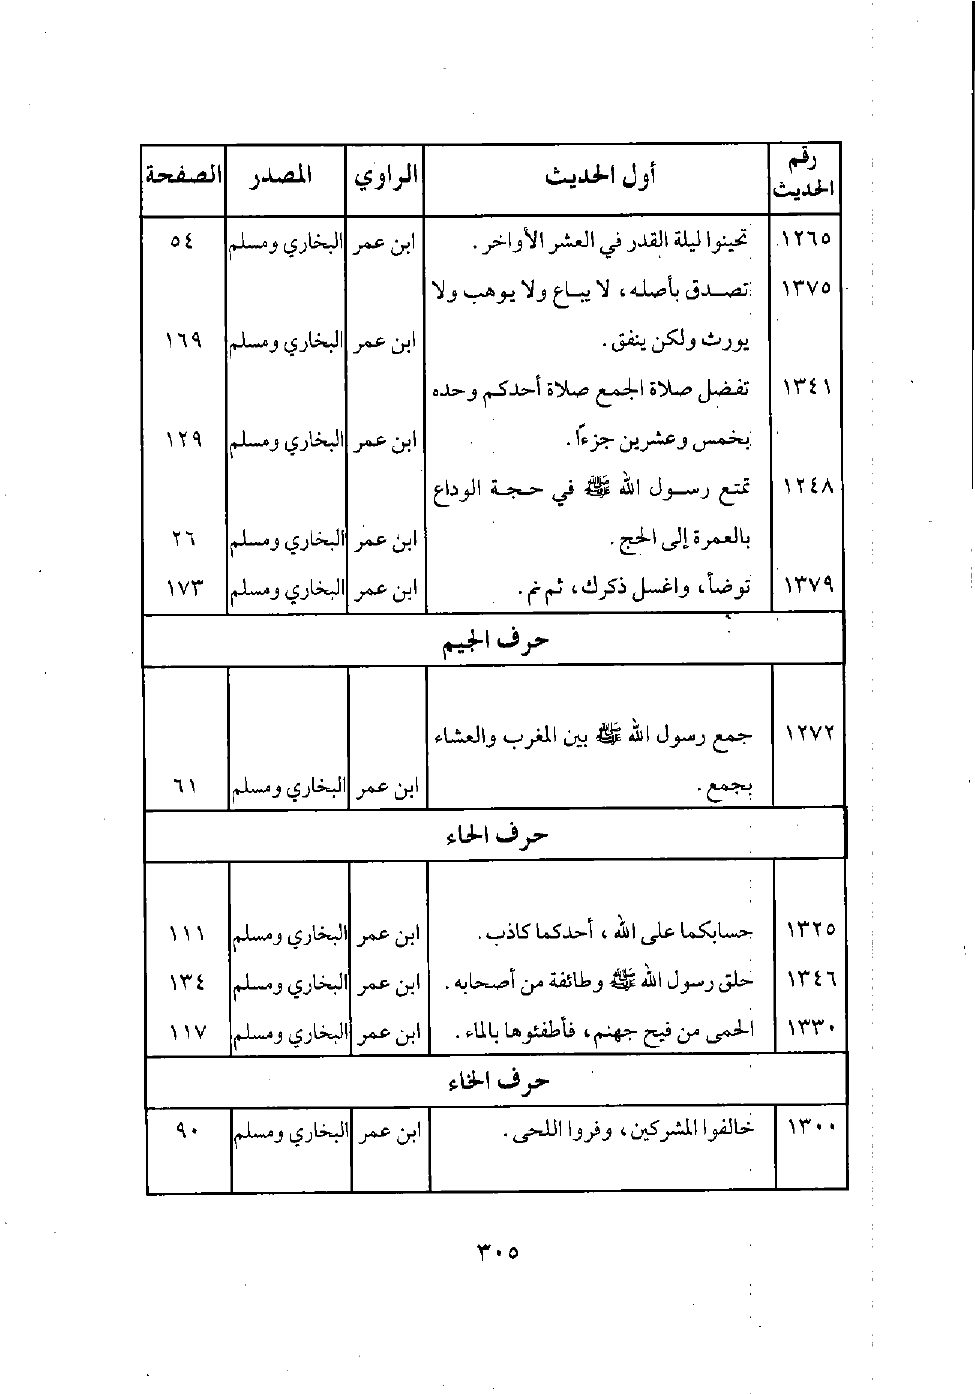 رقم الحديث أول الحديث الراوي المصدر الصفحة
١٢٦٥ تحينوا ليلة القدر في العشر الأواخر. ابن عمر البخاري ومسلم ٥٤
١٣٧٥ تصدق بأصله، لا يباع ولا يوهب ولا
يورث ولكن ينفق. ابن عمر البخاري ومسلم ١٦٩
١٣٤١ تفضل صلاة الجمع صلاة أحدكم وحده
بخمس وعشرين جزءًا. ابن عمر البخاري ومسلم ١٢٩
١٢٤٨ تمتع رسول الله ﷺ في حجة الوداع
بالعمرة إلى الحج. ابن عمر البخاري ومسلم ٢٦
١٣٧٩ توضأ، واغسل ذكرك، ثم نم. ابن عمر البخاري ومسلم ١٧٣
حرف الجيم
١٢٧٢ جمع رسول الله ﷺ بين المغرب والعشاء
بجمع. ابن عمر البخاري ومسلم ٦١
حرف الحاء
١٣٢٥ حسابكما على الله، أحدكما كاذب. ابن عمر البخاري ومسلم ١١١
١٣٤٦ حلق رسول الله ﷺ وطائفة من أصحابه. ابن عمر البخاري ومسلم ١٣٤
١٣٣٠ الحمى من فيح جهنم، فأطفئوها بالماء. ابن عمر البخاري ومسلم ١١٧
حرف الخاء
١٣٠٠ خالفوا المشركين، وفروا اللحى. ابن عمر البخاري ومسلم ٩٠
٣٠٥